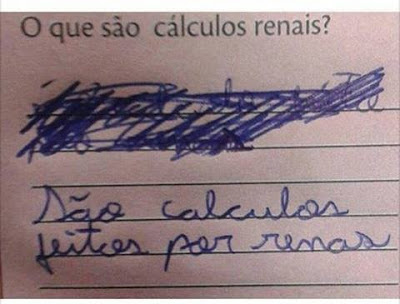 O que são cálculos renais?
São calculos
feitos por renas